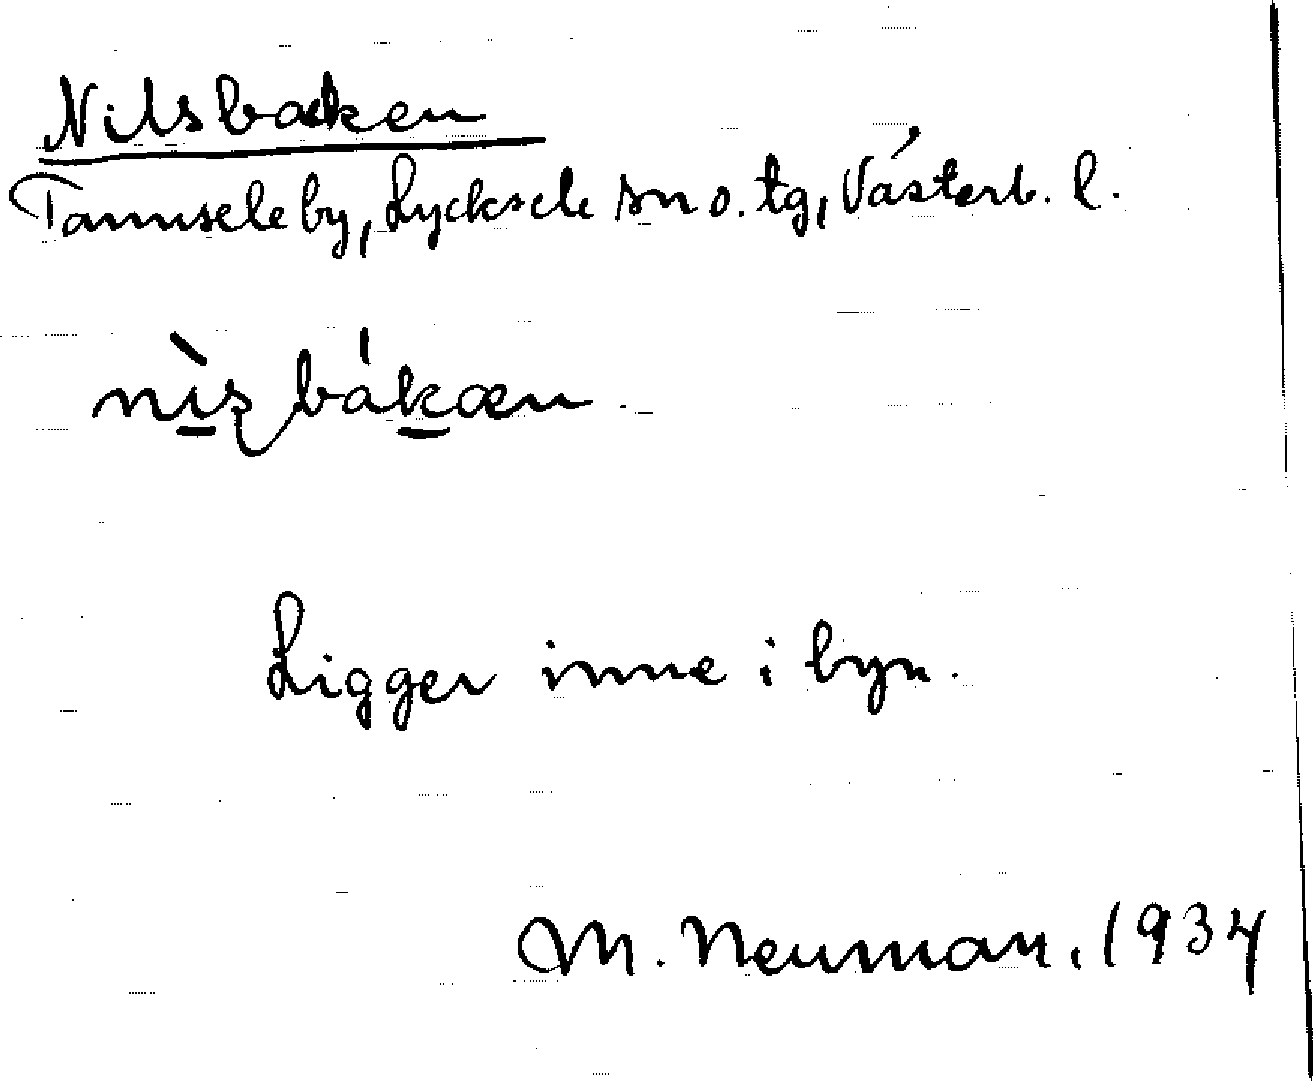 Nilsbacken
Tannsele by, Lycksele sn o. tg, Västerb. l.
nìs̱ bákæn
Ligger inne i byn.
M. Neuman, 1934